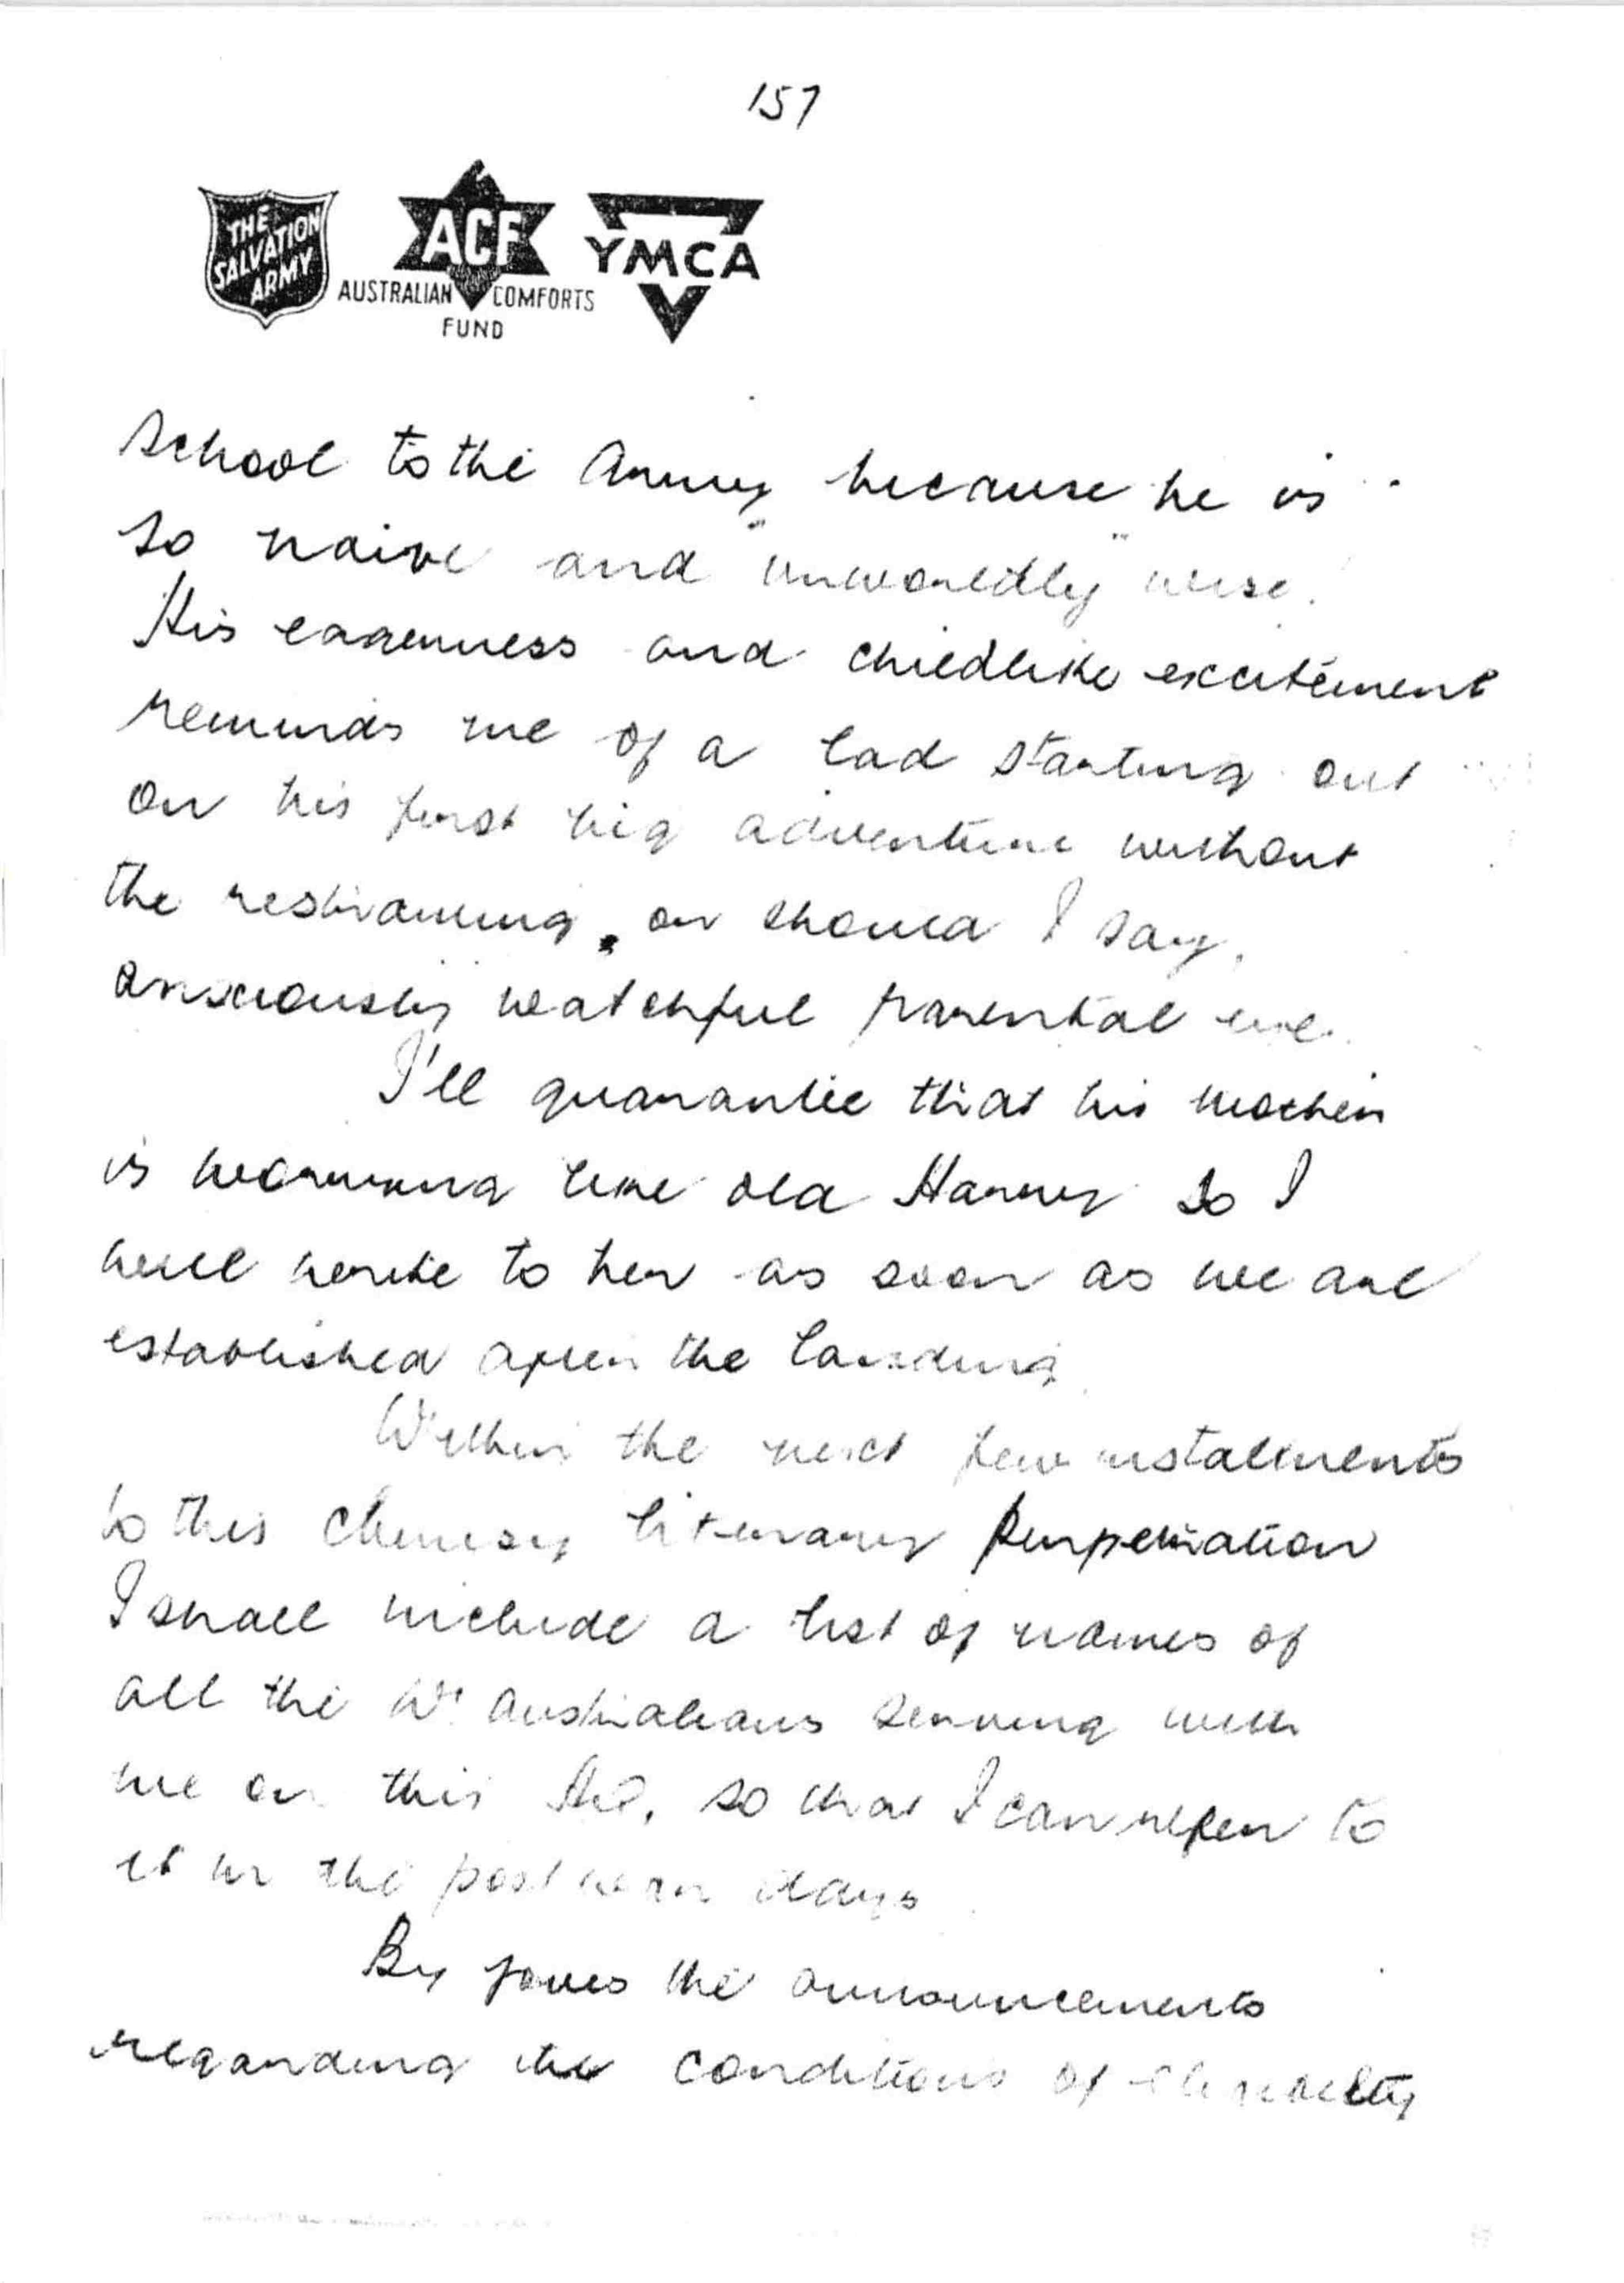 157
THE SALVATION ARMY
ACF
AUSTRALIAN COMFORTS
FUND
YMCA
School to the Army because he is
so naive and "unworldly" wise.
His eagerness and childlike excitement
reminds me of a lad starting out
on his first big adventure without
the restraining, or should I say,
anxiously watchful parental eye.
I'll guarantee that his mother
is worrying like old Harry so I
will write to her as soon as we are
established after the landing
Within the next few instalments
to this clumsy literary
I shall include a list of names of
all the W. Australians serving with
me on this so that I can refer to
it in the post war days
By Joves the announcements
regarding the conditions of